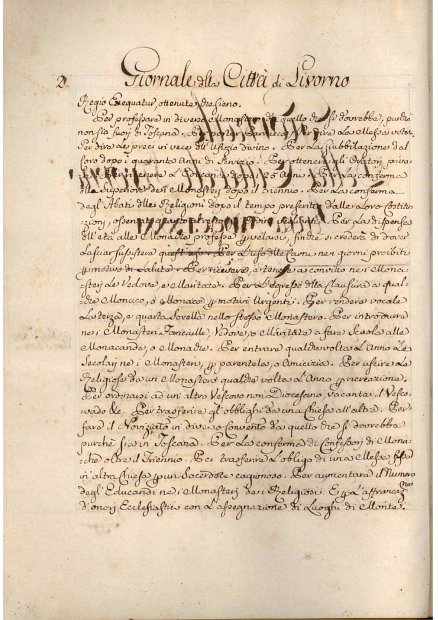 2. Giornale della Città di Livorno
Regio Exequatur, ottenute che sieno.
Per professare in diverso Monastero da quello che si dovrebbe, purchè
non sia fuori di Toscana. Per
Per dire le preci in vece dell'Ufizio divino. Per La Giubbilazione del
Coro dopo i quaranta anni di servizio. Per ottener gli Oratorj priva
25 Anni. Per La conferma
alla Superiora dei Monasterj dopo il triennio. Per La conferma
degl'Abati delle Religioni dopo il tempo prescritto dalle Loro Costitu
zioni, Per La dispensa
dell'età alle Monache professe, o velarsi, finchè si crederà di dover
Lasciar sussistere quest'uso. Per L'uso delle Carni nei giorni proibiti
p motivo di salute. Per ricevere, o tenere a convitto nei Mona-
sterj Le Vedove, o Maritate. Per L'egresso della Clausura a qual
che Monaca, o Monaco p motivi Urgenti. Per rendere vocale
La terza, o quarta Sorella nello stesso Monastero. Per introdurre
nei Monasterj Fanciulle, Vedove, o Maritate a fare Scuola alle
Monacande, o Monache. Per entrare qualche volta L'Anno Le
Secolari nei Monasterj p parentela, o Amicizia. Per uscire La
Religiosa da un Monastero qualche volta L'Anno p ricreazione.
Per ordinarsi ad un'altro Vescovo non Diocesano, vacante il Vesco-
vado &c. Per trasferire gli obblighi da una Chiesa all'altra. Per
fare il Noviziato in diverso Convento da quello che si dovrebbe
purchè sia in Toscana. Per La conferma di Confessori di Mona-
che oltre il Triennio. Per trasferire L'obligo di una Messa fissa
in altra Chiesa p un Sacerdote cagionoso. Per aumentare il Numero
degl'Educandi nei Monasterj dei Religiosi. E p L'affrancazne
d'oneri Ecclesiastici con L'assegnazione di Luoghi di Monte.